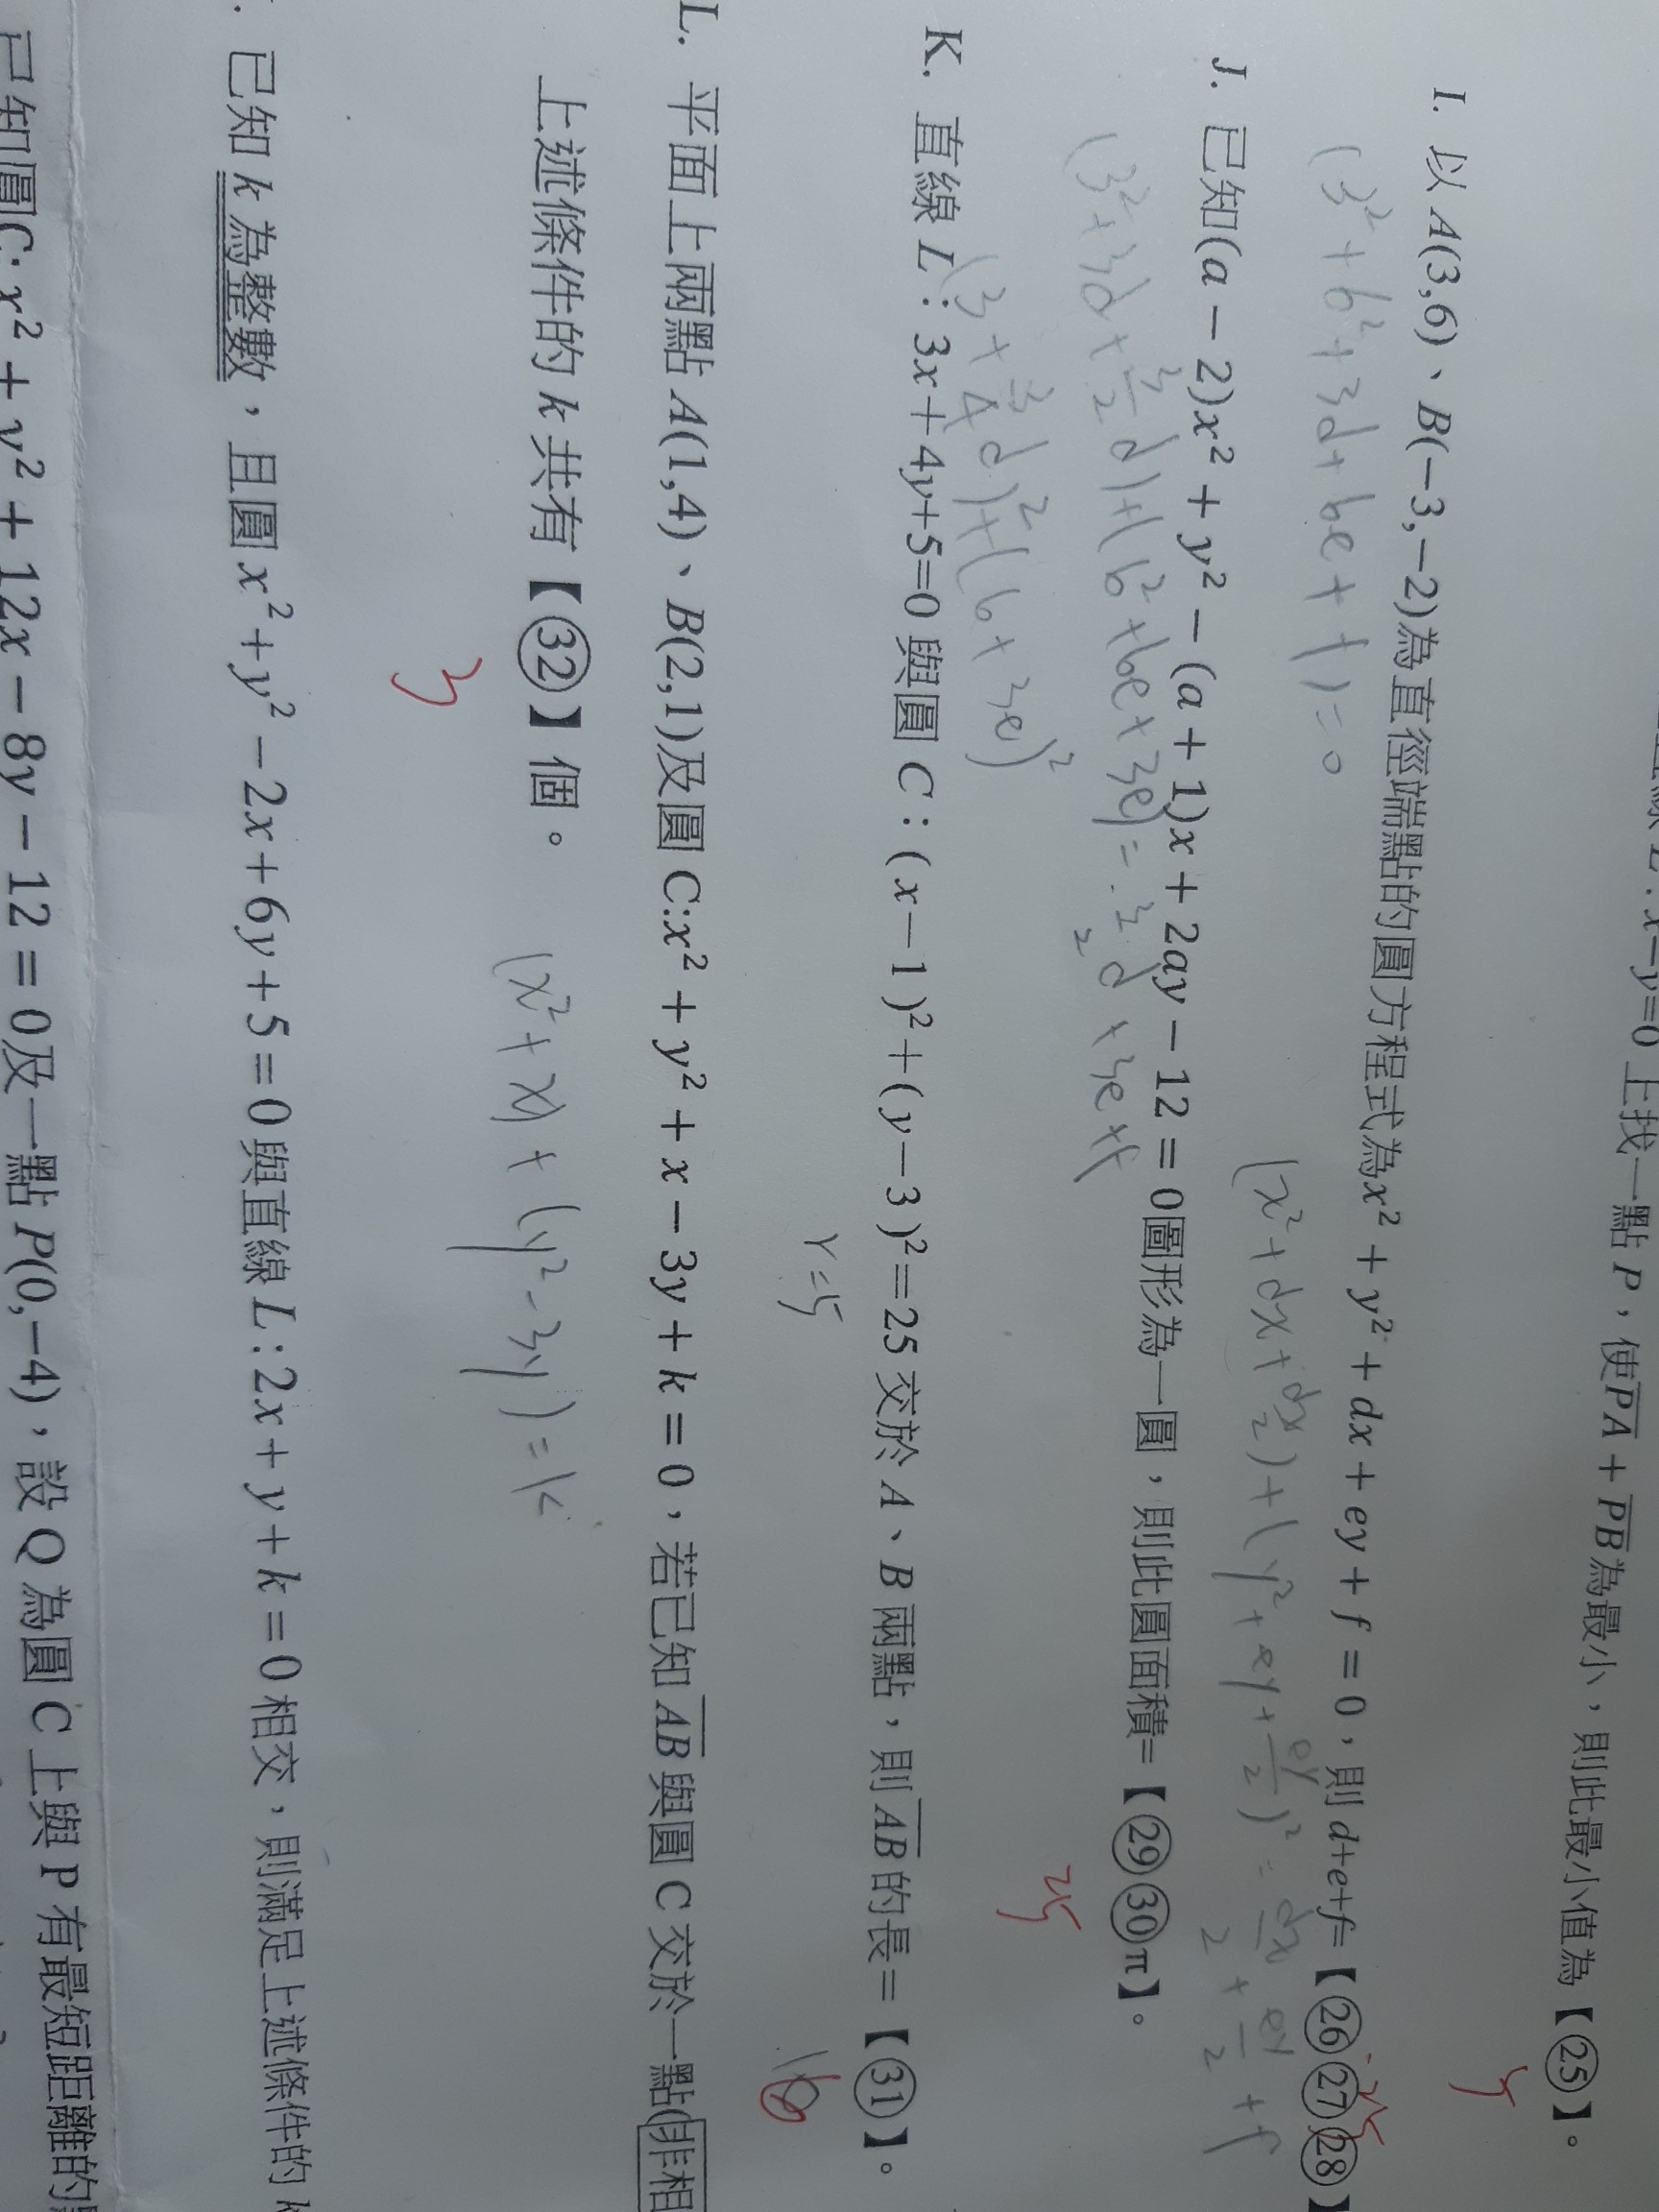 上找一點 P，使PA + PB為最小，則此最小值為【㉕】。
5
I. 以 A(3,6)、B(−3,−2)為直徑端點的圓方程式為x² + y² + dx + ey + f = 0，則 d+e+f=【㉖㉗㉘】
-25
(3²+6²+3d+6e+f)=0
J. 已知(a − 2)x² + y² − (a + 1)x + 2ay − 12 = 0圖形為一圓，則此圓面積=【㉙㉚π】。
25
K. 直線 L：3x+4y+5=0 與圓 C：(x−1)²+(y−3)²=25 交於 A、B 兩點，則 AB 的長=【㉛】。
r=5
6
L. 平面上兩點 A(1,4)、B(2,1)及圓 C:x² + y² + x − 3y + k = 0，若已知 AB 與圓 C 交於一點(非相
上述條件的 k 共有【㉜】個。
3
(x²+x)+(y²-3y)=k
. 已知 k 為整數，且圓 x²+y²−2x+6y+5=0 與直線 L:2x+y+k=0 相交，則滿足上述條件的 k
已知圓C: x² + y² + 12x − 8y − 12 = 0及一點 P(0,−4)，設 Q 為圓 C 上與 P 有最短距離的